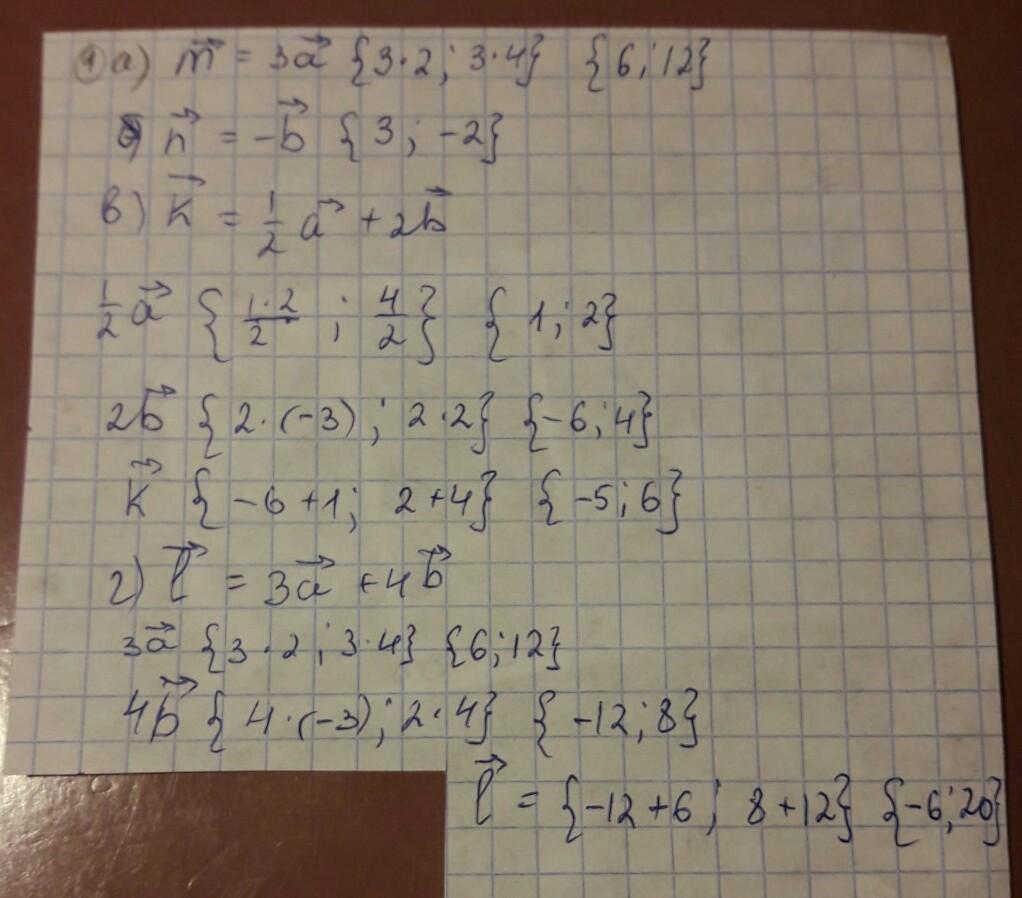 ① а) m⃗ = 3a⃗ {3·2; 3·4} {6; 12}
б) n⃗ = -b⃗ {3; -2}
в) k⃗ = 1/2 a⃗ + 2b⃗
1/2 a⃗ {1·2/2; 4/2} {1; 2}
2b⃗ {2·(-3); 2·2} {-6; 4}
k⃗ {-6+1; 2+4} {-5; 6}
г) l⃗ = 3a⃗ + 4b⃗
3a⃗ {3·2; 3·4} {6; 12}
4b⃗ {4·(-3); 2·4} {-12; 8}
l⃗ = {-12+6; 8+12} {-6; 20}